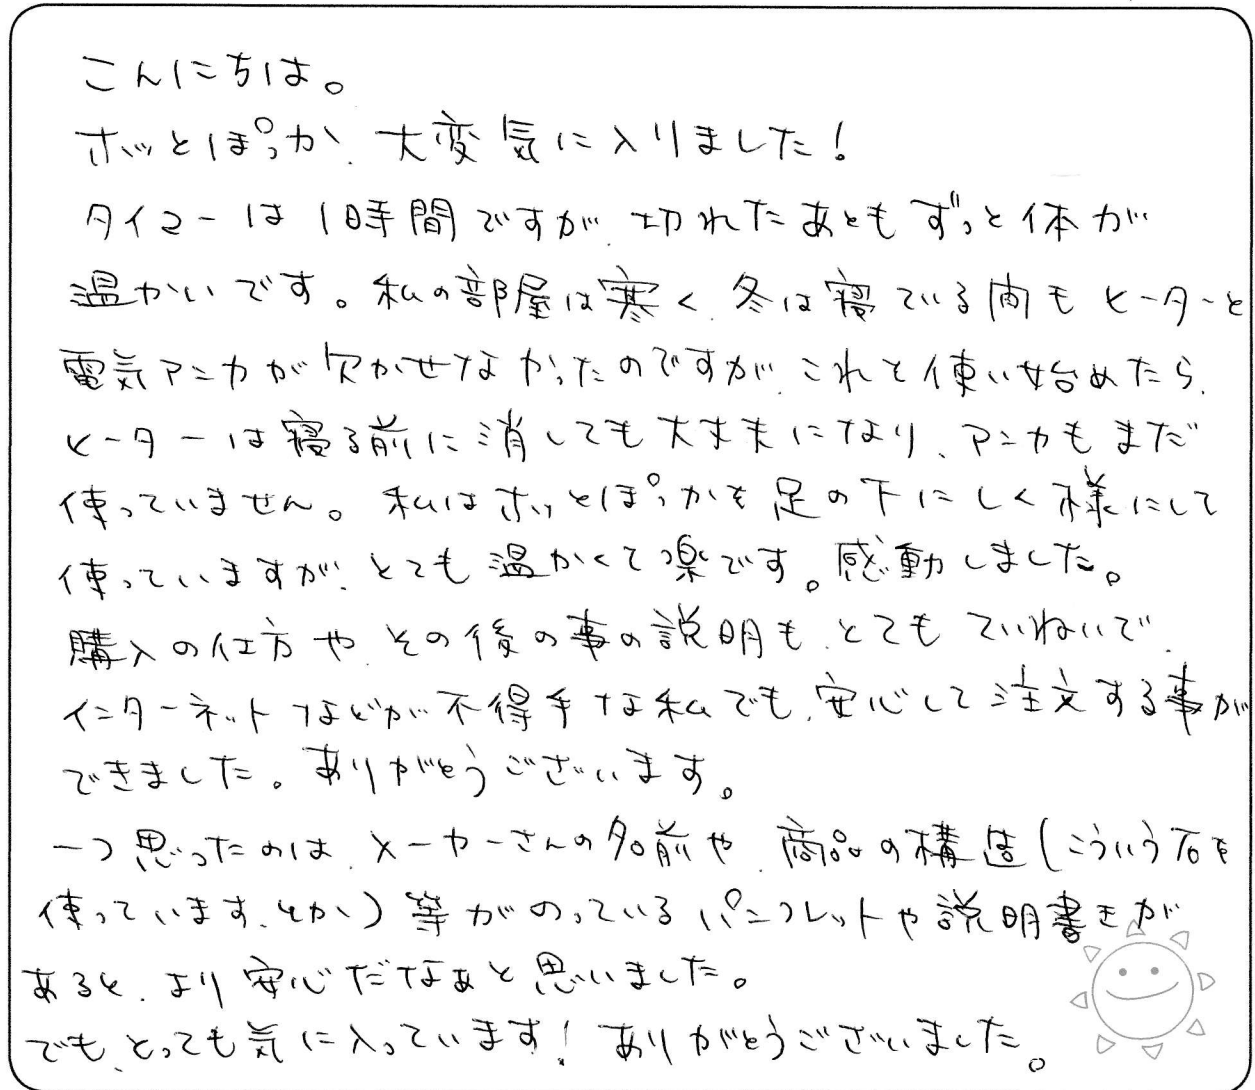 こんにちは。
ホッとぽっか、大変気に入りました！
タイマーは1時間ですが、切れたあともずっと体が
温かいです。私の部屋は寒く、冬は寝ている間もヒーターと
電気アンカが欠かせなかったのですが、これを使い始めたら、
ヒーターは寝る前に消しても大丈夫になり、アンカもまだ
使っていません。私はホッとぽっかを足の下にしく様にして
使っていますが、とても温かくて楽です。感動しました。
購入の仕方や、その後の事の説明も、とてもていねいで、
インターネットなどが不得手な私でも、安心して注文する事が
できました。ありがとうございます。
一つ思ったのは、メーカーさんの名前や、商品の構造(こういう石を
使っています、とか)等がのっているパンフレットや説明書きが
あると、より安心だなぁと思いました。
でも、とっても気に入っています！ありがとうございました。